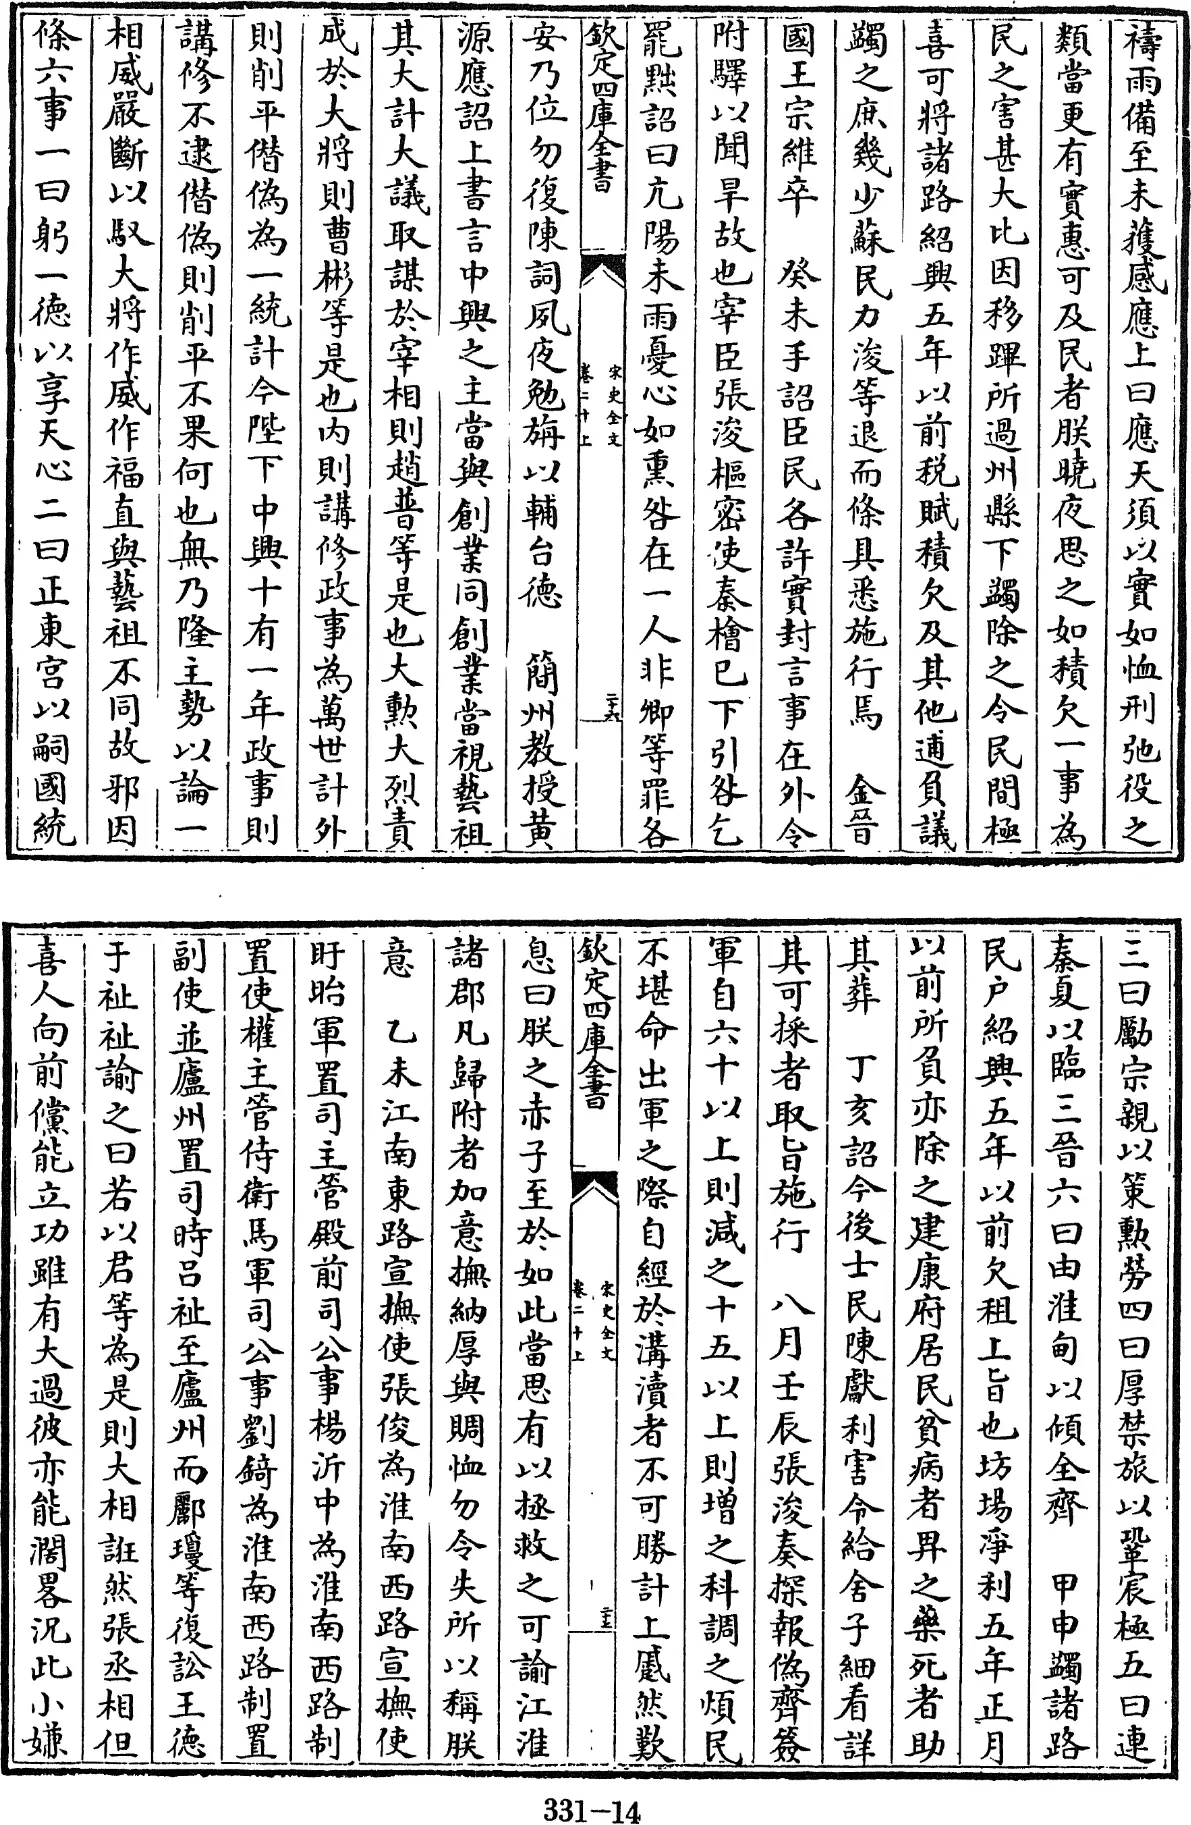 禱雨備至未獲感應上曰應天須以實如恤刑弛役之
類當更有實惠可及民者朕曉夜思之如積欠一事為
民之害甚大比因移蹕所過州縣下蠲除之令民間極
喜可將諸路紹興五年以前税賦積欠及其他逋負議
蠲之庶幾少蘇民力浚等退而條具悉施行焉　金晉
國王宗維卒　癸未手詔臣民各許實封言事在外令
附驛以聞旱故也宰臣張浚樞密使秦檜已下引咎乞
罷黜詔曰亢陽未雨憂心如熏咎在一人非卿等罪各
欽定四庫全書
宋史全文
卷二十上
二十六
安乃位勿復陳詞夙夜勉旃以輔台德　簡州教授黄
源應詔上書言中興之主當與創業同創業當視藝祖
其大計大議取謀於宰相則趙普等是也大勲大烈責
成於大將則曹彬等是也内則講修政事為萬世計外
則削平僭偽為一統計今陛下中興十有一年政事則
講修不逮僭偽則削平不果何也無乃隆主勢以論一
相威嚴斷以馭大將作威作福直與藝祖不同故邪因
條六事一曰躬一德以享天心二曰正東宫以嗣國統
三曰勵宗親以策勲勞四曰厚禁旅以鞏宸極五曰連
秦夏以臨三晉六曰由淮甸以傾全齊　甲申蠲諸路
民户紹興五年以前欠租上旨也坊場淨利五年正月
以前所負亦除之建康府居民貧病者畀之藥死者助
其葬　丁亥詔今後士民陳獻利害令給舍子細看詳
其可採者取旨施行　八月壬辰張浚奏探報偽齊簽
軍自六十以上則減之十五以上則增之科調之煩民
不堪命出軍之際自經於溝瀆者不可勝計上慼然歎
欽定四庫全書
宋史全文
卷二十上
息曰朕之赤子至於如此當思有以拯救之可諭江淮
諸郡凡歸附者加意撫納厚與賙恤勿令失所以稱朕
意　乙未江南東路宣撫使張俊為淮南西路宣撫使
盱眙軍置司主管殿前司公事楊沂中為淮南西路制
置使權主管侍衛馬軍司公事劉錡為淮南西路制置
副使並廬州置司時吕祉至廬州而酈瓊等復訟王德
于祉祉諭之曰若以君等為是則大相誑然張丞相但
喜人向前儻能立功雖有大過彼亦能濶畧況此小嫌
331-14